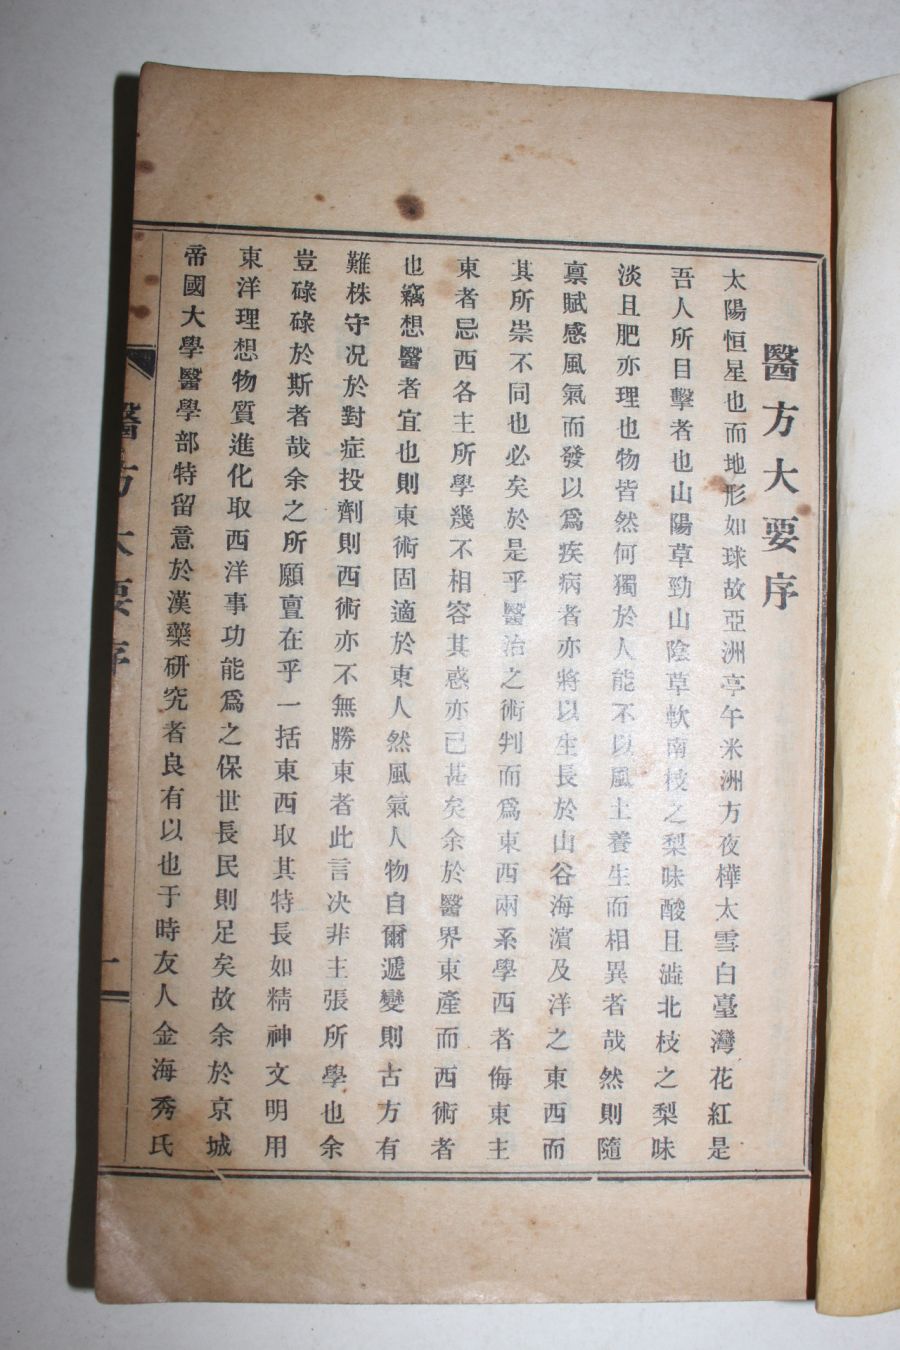 醫方大要序
太陽恒星也而地形如球故亞洲亭午米洲方夜樺太雪白臺灣花紅是
吾人所目擊者也山陽草勁山陰草軟南枝之梨味酸且澁北枝之梨味
淡且肥亦理也物皆然何獨於人能不以風土養生而相異者哉然則隨
稟賦感風氣而發以爲疾病者亦將以生長於山谷海濱及洋之東西而
其所祟不同也必矣於是乎醫治之術判而爲東西兩系學西者侮東主
東者忌西各主所學幾不相容其惑亦已甚矣余於醫界東產而西術者
也竊想醫者宜也則東術固適於東人然風氣人物自爾遞變則古方有
難株守况於對症投劑則西術亦不無勝東者此言决非主張所學也余
豈碌碌於斯者哉余之所願亶在乎一括東西取其特長如精神文明用
東洋理想物質進化取西洋事功能爲之保世長民則足矣故余於京城
帝國大學醫學部特留意於漢藥研究者良有以也于時友人金海秀氏
醫方大要序
一